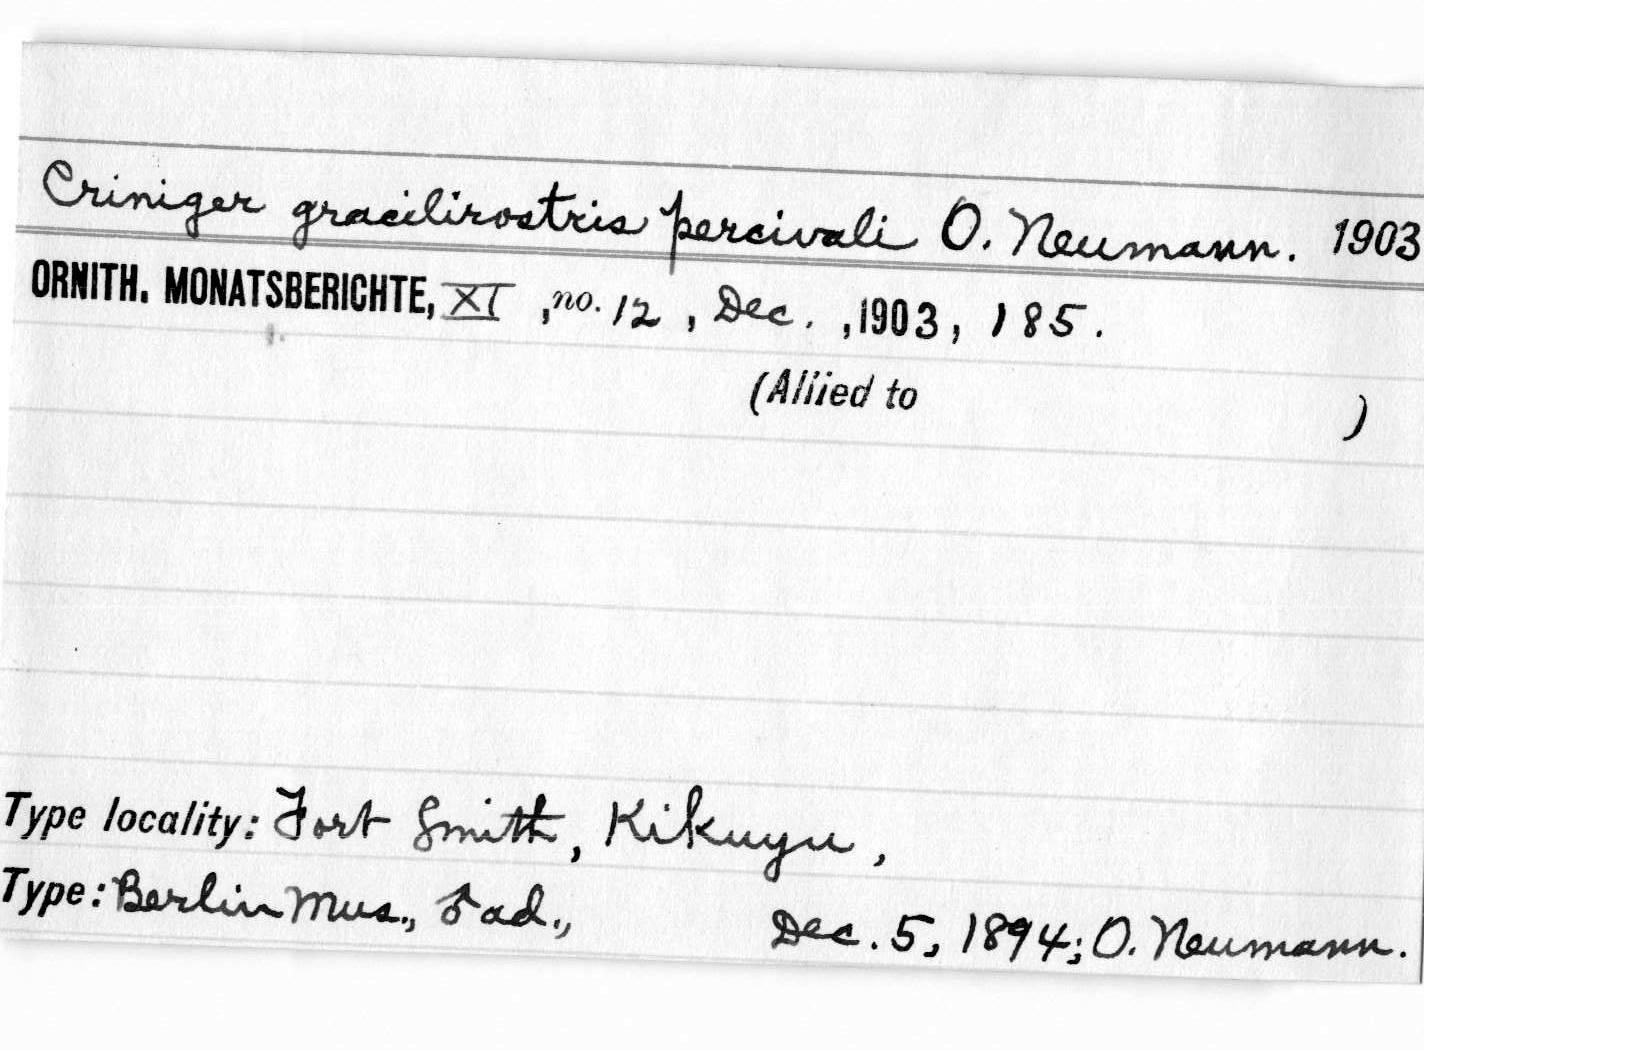 Criniger gracilirostris percivali O. Neumann. 1903
ORNITH. MONATSBERICHTE, XI, no. 12, Dec., 1903, 185.
(Allied to )
Type locality: Fort Smith, Kikuyu,
Type: Berlin Mus., ♂ ad., Dec. 5, 1894; O. Neumann.